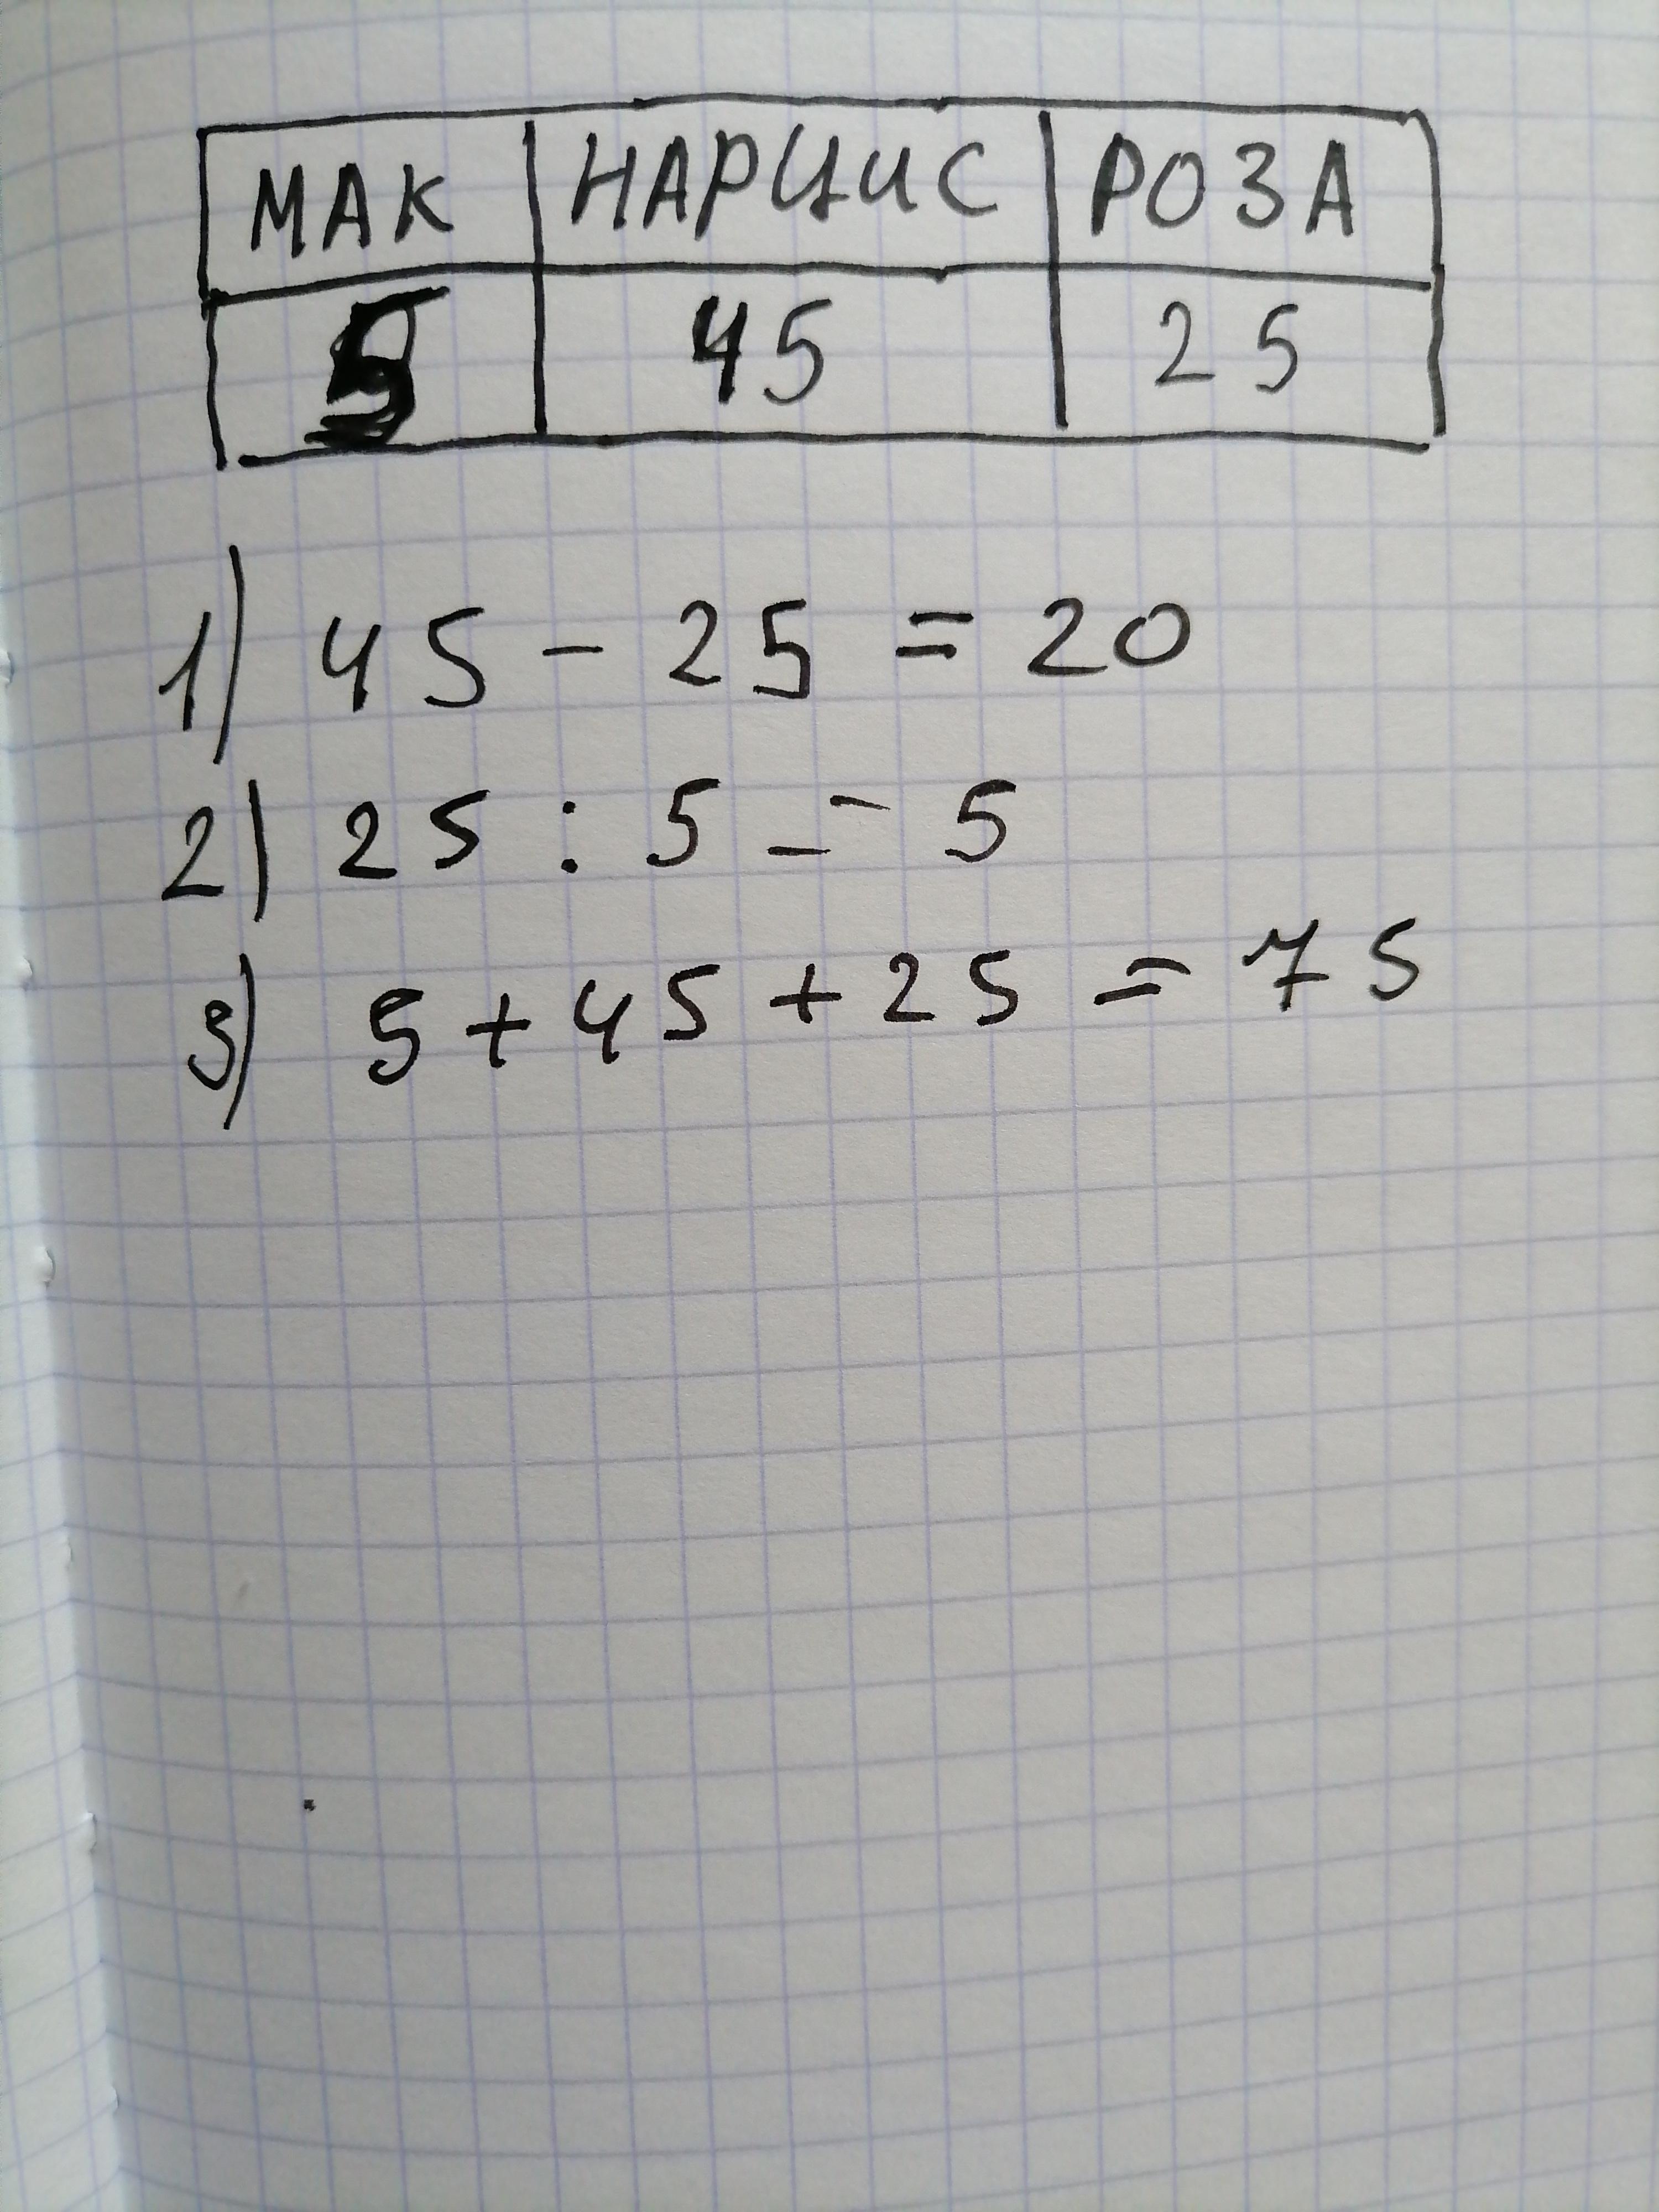 МАК НАРЦИС РОЗА
5 45 25
1) 45 - 25 = 20
2) 25 : 5 = 5
3) 5 + 45 + 25 = 75